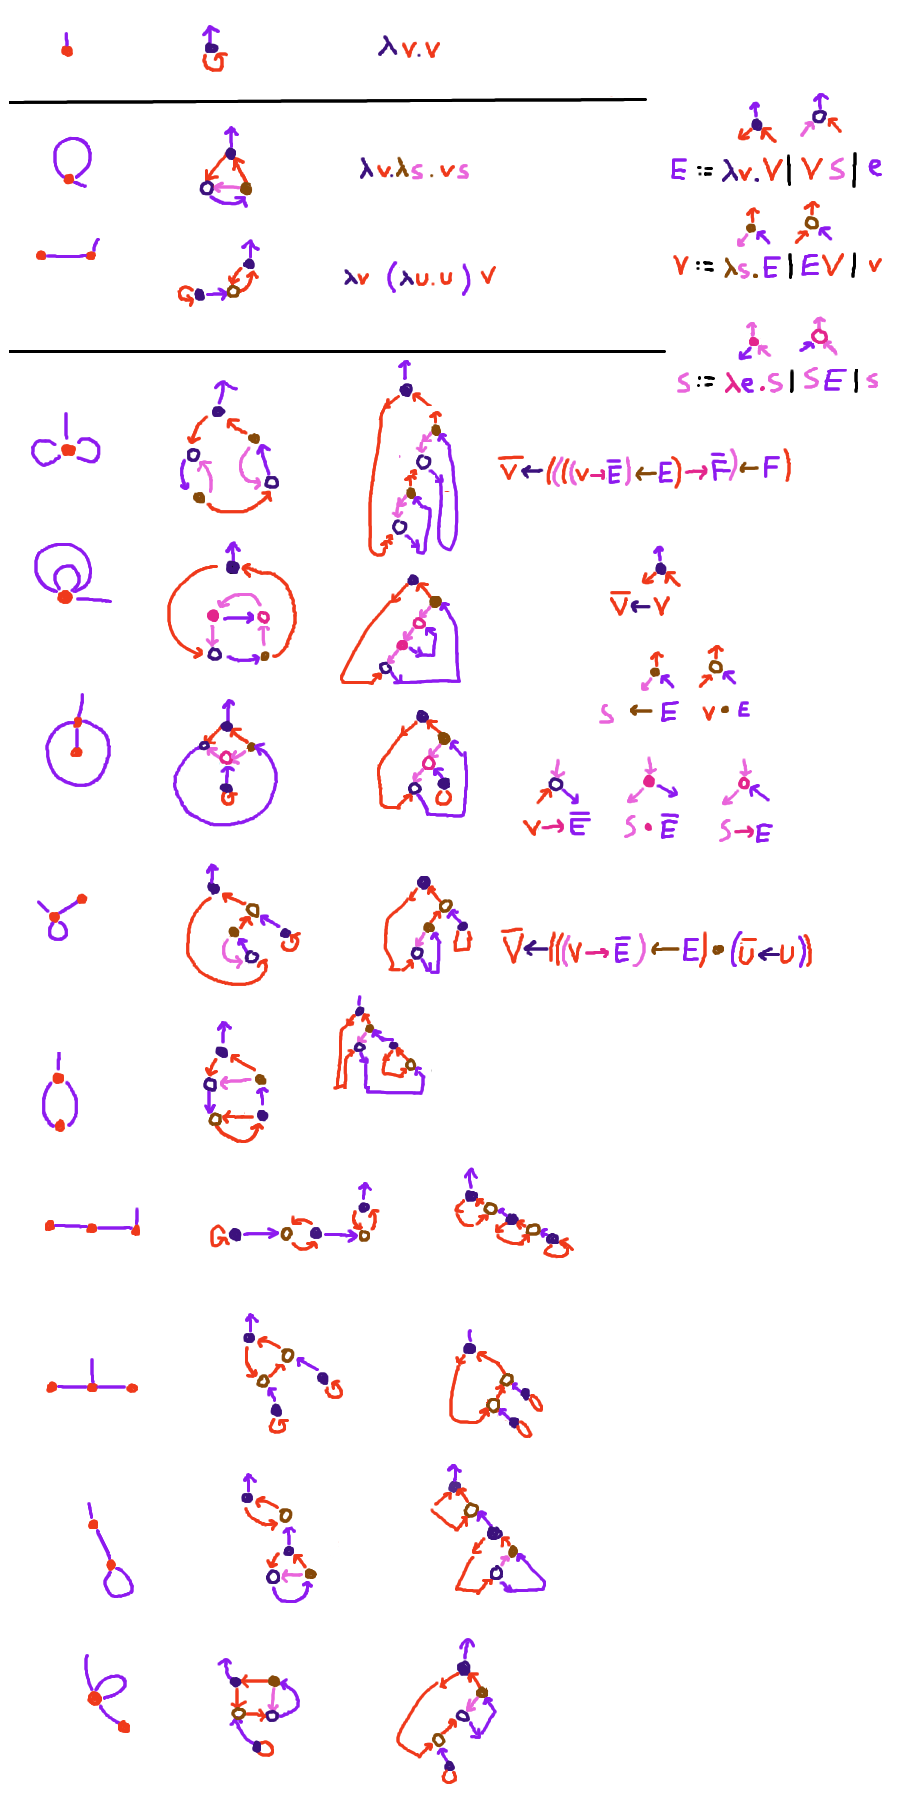 λv.v
λv.λs.vs
E := λv.V | V S | e
λv (λu.u) v
V := λs.E | E V | v
S := λe.S | S E | s
V̅←((((v→E̅)←E)→F̅)←F)
V̅←V
S ← E V • E
V→E̅ S • E̅ S→E
V̅←(((v→E̅)←E)•(u̅←u))